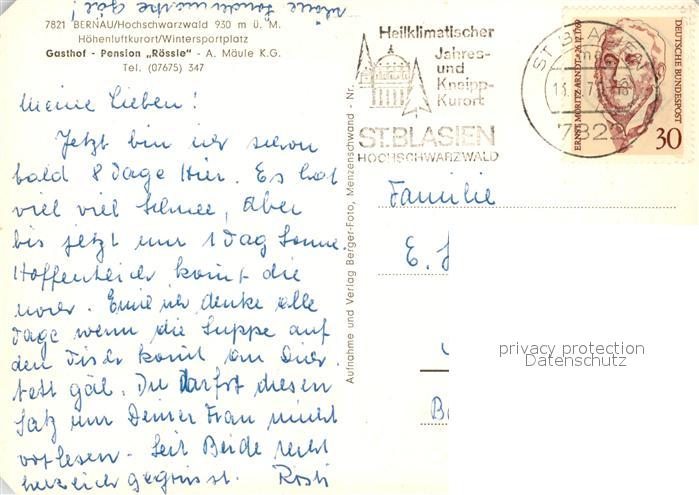 7821 BERNAU/Hochschwarzwald 930 m ü. M.
Höhenluftkurort/Wintersportplatz
Gasthof - Pension „Rössle" - A. Mäule K.G.
Tel. (07675) 347
Meine Lieben!
Jetzt bin ich schon
bald 8 Tage Hier. Es hat
viel viel Schnee, Aber
bis jetzt nur 1 Tag Sonne.
Hoffentlich komt die
noch. Emil ich denke alle
Tage wenn die Suppe auf
den Tisch komt an
gäl. Du Darfst diesen
Satz nur Deiner Frau nicht
vorlesen. Seit Beide recht
herzlich gegrüsst. Rosti
Aufnahme und Verlag Berger-Foto, Menzenschwand - Nr.
Heilklimatischer
Jahres-
und
Kneipp-
Kurort
ST.BLASIEN
HOCHSCHWARZWALD
ST. BLASIEN
7822
ERNST MORITZ ARNDT • 26.12.1769
DEUTSCHE BUNDESPOST
30
Familie
E.
privacy protection
Datenschutz